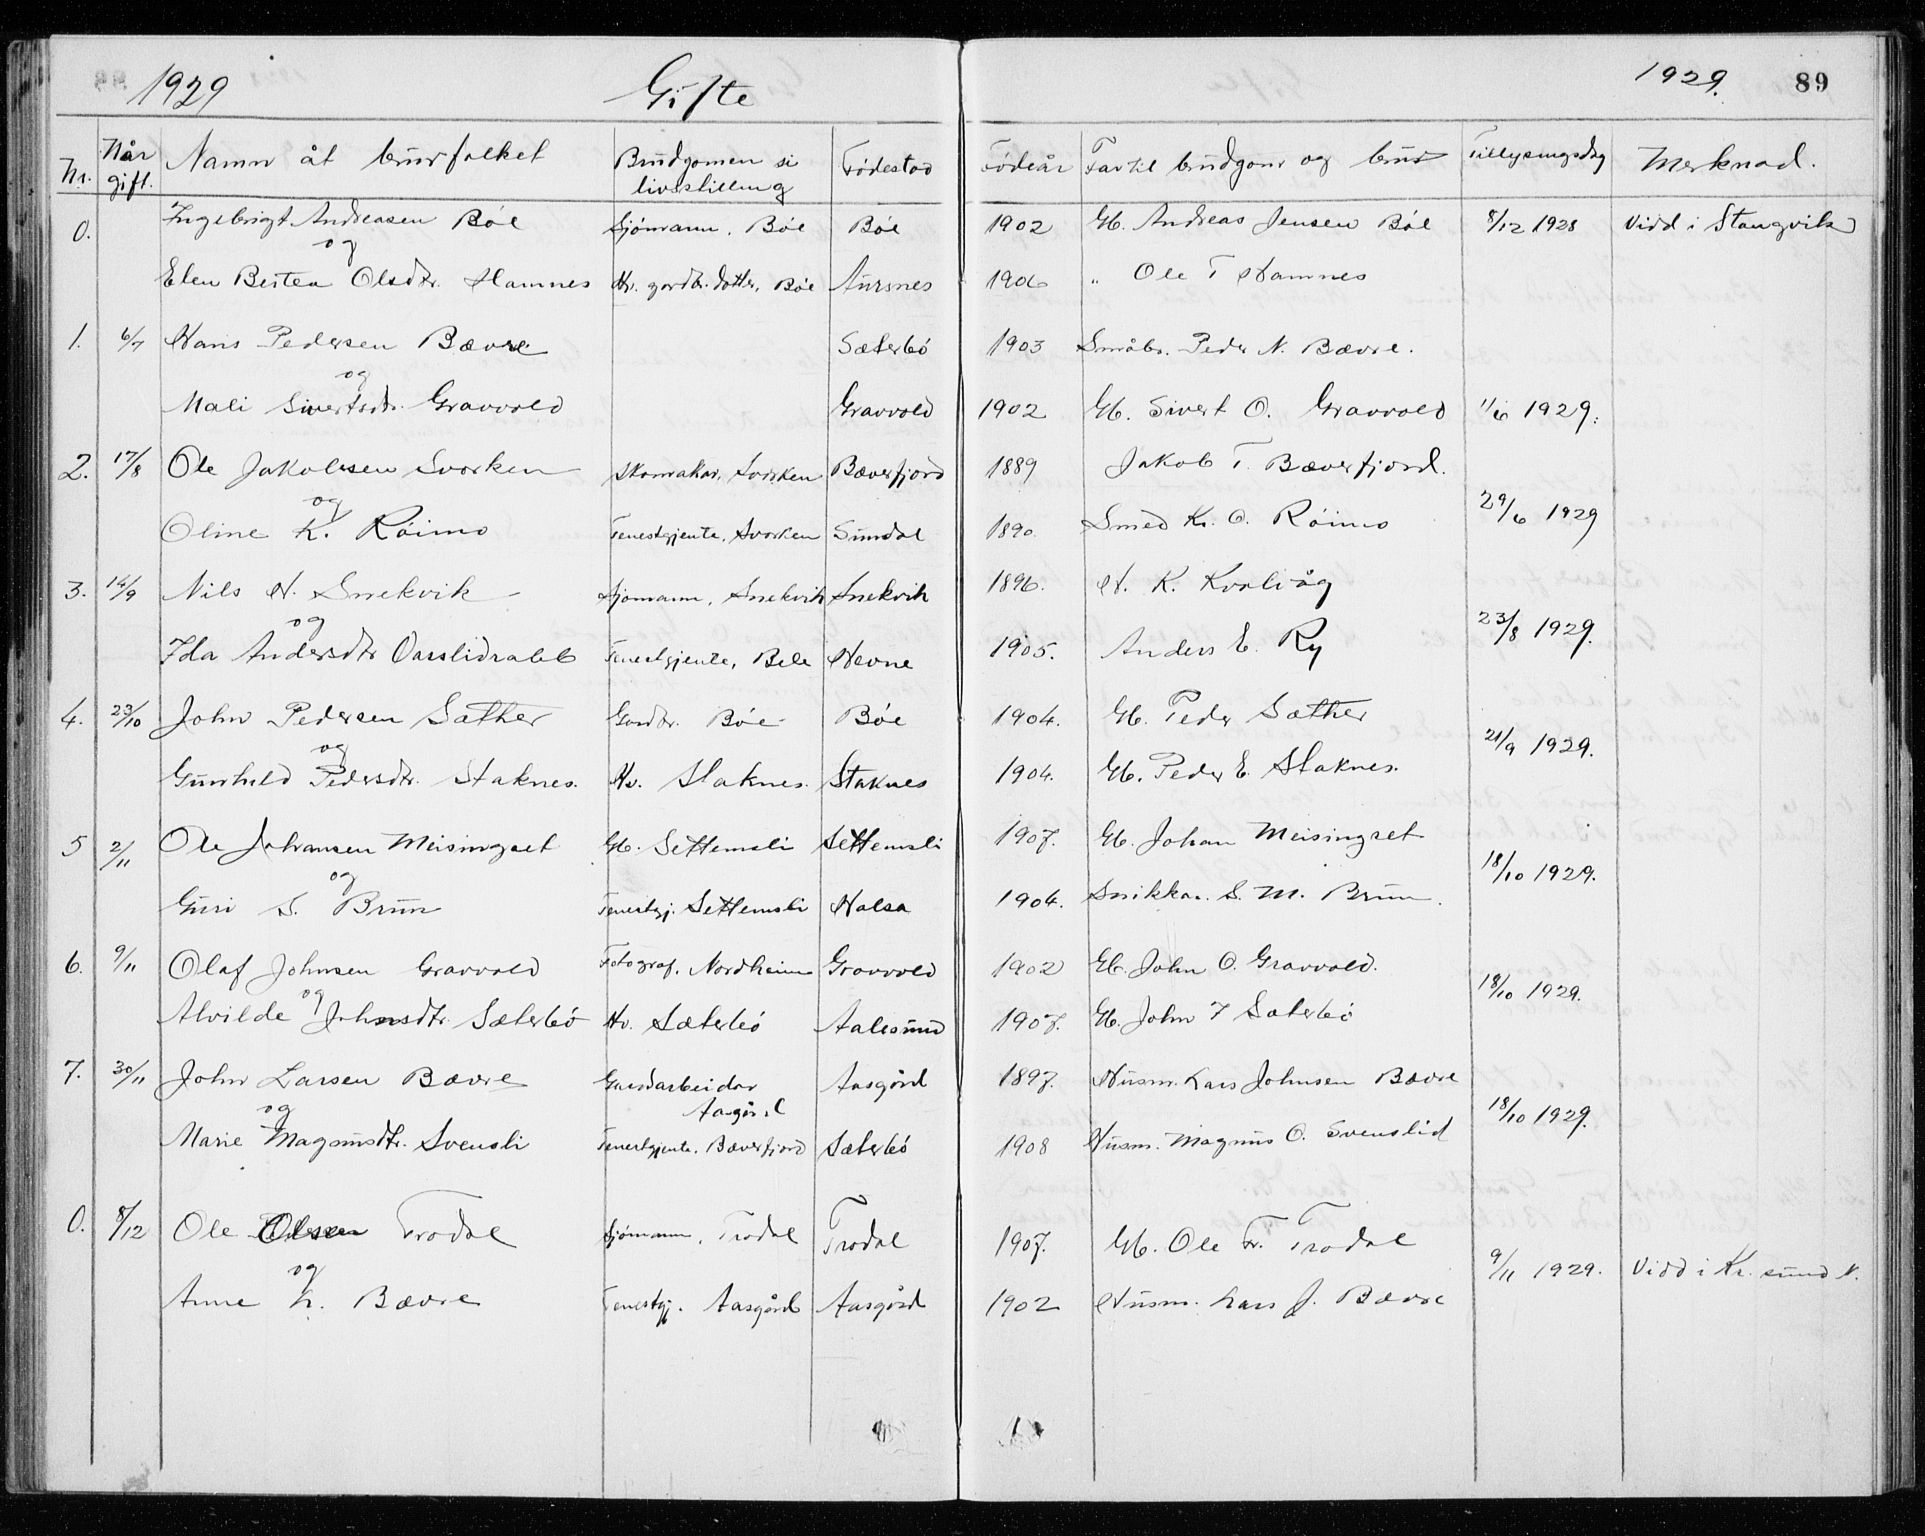 1929 Gifte 1929. 89
Nr. Når gift. Namn åt brurfolket Brudgomen si livsstilling Fødestad Fødeår Far til brudgom og brur Tillysingsdag Merknad.
0. Ingebrigt Andreasen Bøe Sjømann, Bøe Bøe 1902 Gb. Andreas Jensen Bøe 8/12 1928 Vidd i Stangvik
og
Elen Bertea Olsdtr. Hamnes gardbr. dotter, Bøe Aursnes 1906 " Ole T Hamnes
1. 6/7 Hans Pedersen Bævre Sæterbø 1903 Småbr. Peder N. Bævre.
og
Mali Sivertsdtr. Gravvold Gravvold 1902 Gb. Sivert O. Gravvold 1/6 1929.
2. 17/8 Ole Jakobsen Svorken Skomakar, Svorken Bæverfjord 1889 Jakob T. Bæverfjord.
og
Oline K. Røimo Tenestgjente, Svorken Sundal 1890. Smed Kr. O. Røimo 29/6 1929
3. 14/9 Nils H. Snekvik Sjømann, Snekvik Snekvik 1896. H. K. Kvalvåg
og
Ida Andersdtr Tenestgjente, Bele Hevne 1905. Anders E. Ry 23/8 1929.
4. 23/10 John Pedersen Sæther Gardbr. Bøe Bøe 1904. Gb. Peder Sæther
og
Gunhild Pedersdtr. Staknes. Hv. Staknes. Staknes 1904. Gb. Peder E. Staknes. 21/9 1929.
5 2/11 Ole Johansen Meisingset Gb. Settemsli Settemsli 1907. Gb. Johan Meisingset
og
Guri S. Brun Tenestgj. Settemsli Halsa 1904. Snikkar. S. M. Brun. 18/10 1929.
6. 9/11 Olaf Johnsen Gravvold Fotograf, Nordheim Gravvold 1902 Gb. John O. Gravvold.
og
Alvilde Johnsdtr. Sæterbø Hv. Sæterbø Aalesund 1907. Gb. John T Sæterbø 18/10 1929.
7. 30/11 John Larsen Bævre Gardarbeidar Aasgård 1897. Husm. Lars Johnsen Bævre
og Aasgård
Marie Magnusdtr. Svensli Tenestgjente. Bæverfjord Sæterbø 1908 Husm. Magnus O. Svenslid 18/10 1929.
0. 8/12 Ole Olsen Trodal Sjømann, Trodal Trodal 1907. Gb. Ole Tr. Trodal
og
Anne L. Bævre Tenestgj. Aasgård Aasgård 1902 Husm. Lars J. Bævre 9/11 1929. Vidd i Kr. sund N.